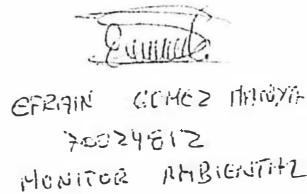 EFRAIN GOMEZ MANYA
70024812
MONITOR AMBIENTAL